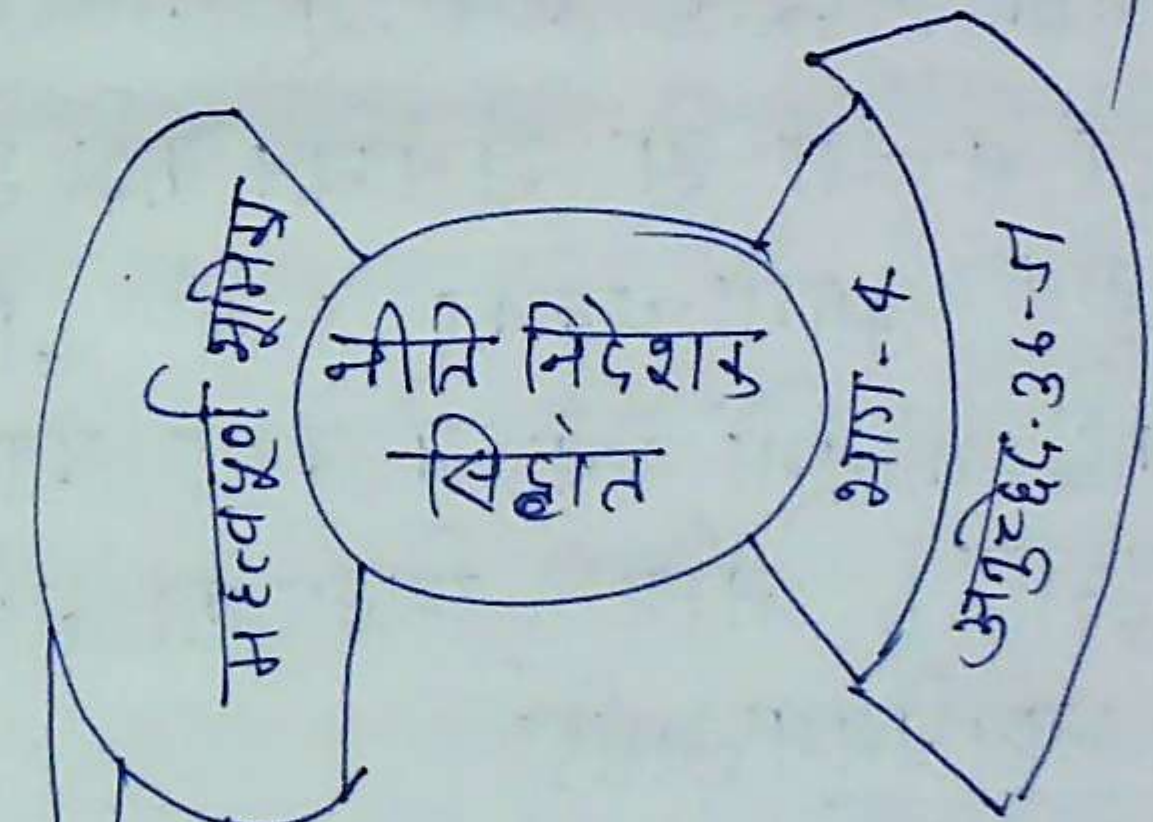 महत्वपूर्ण भूमिका
नीति निदेशक
सिद्धांत
भाग-4
अनुच्छेद-36-51